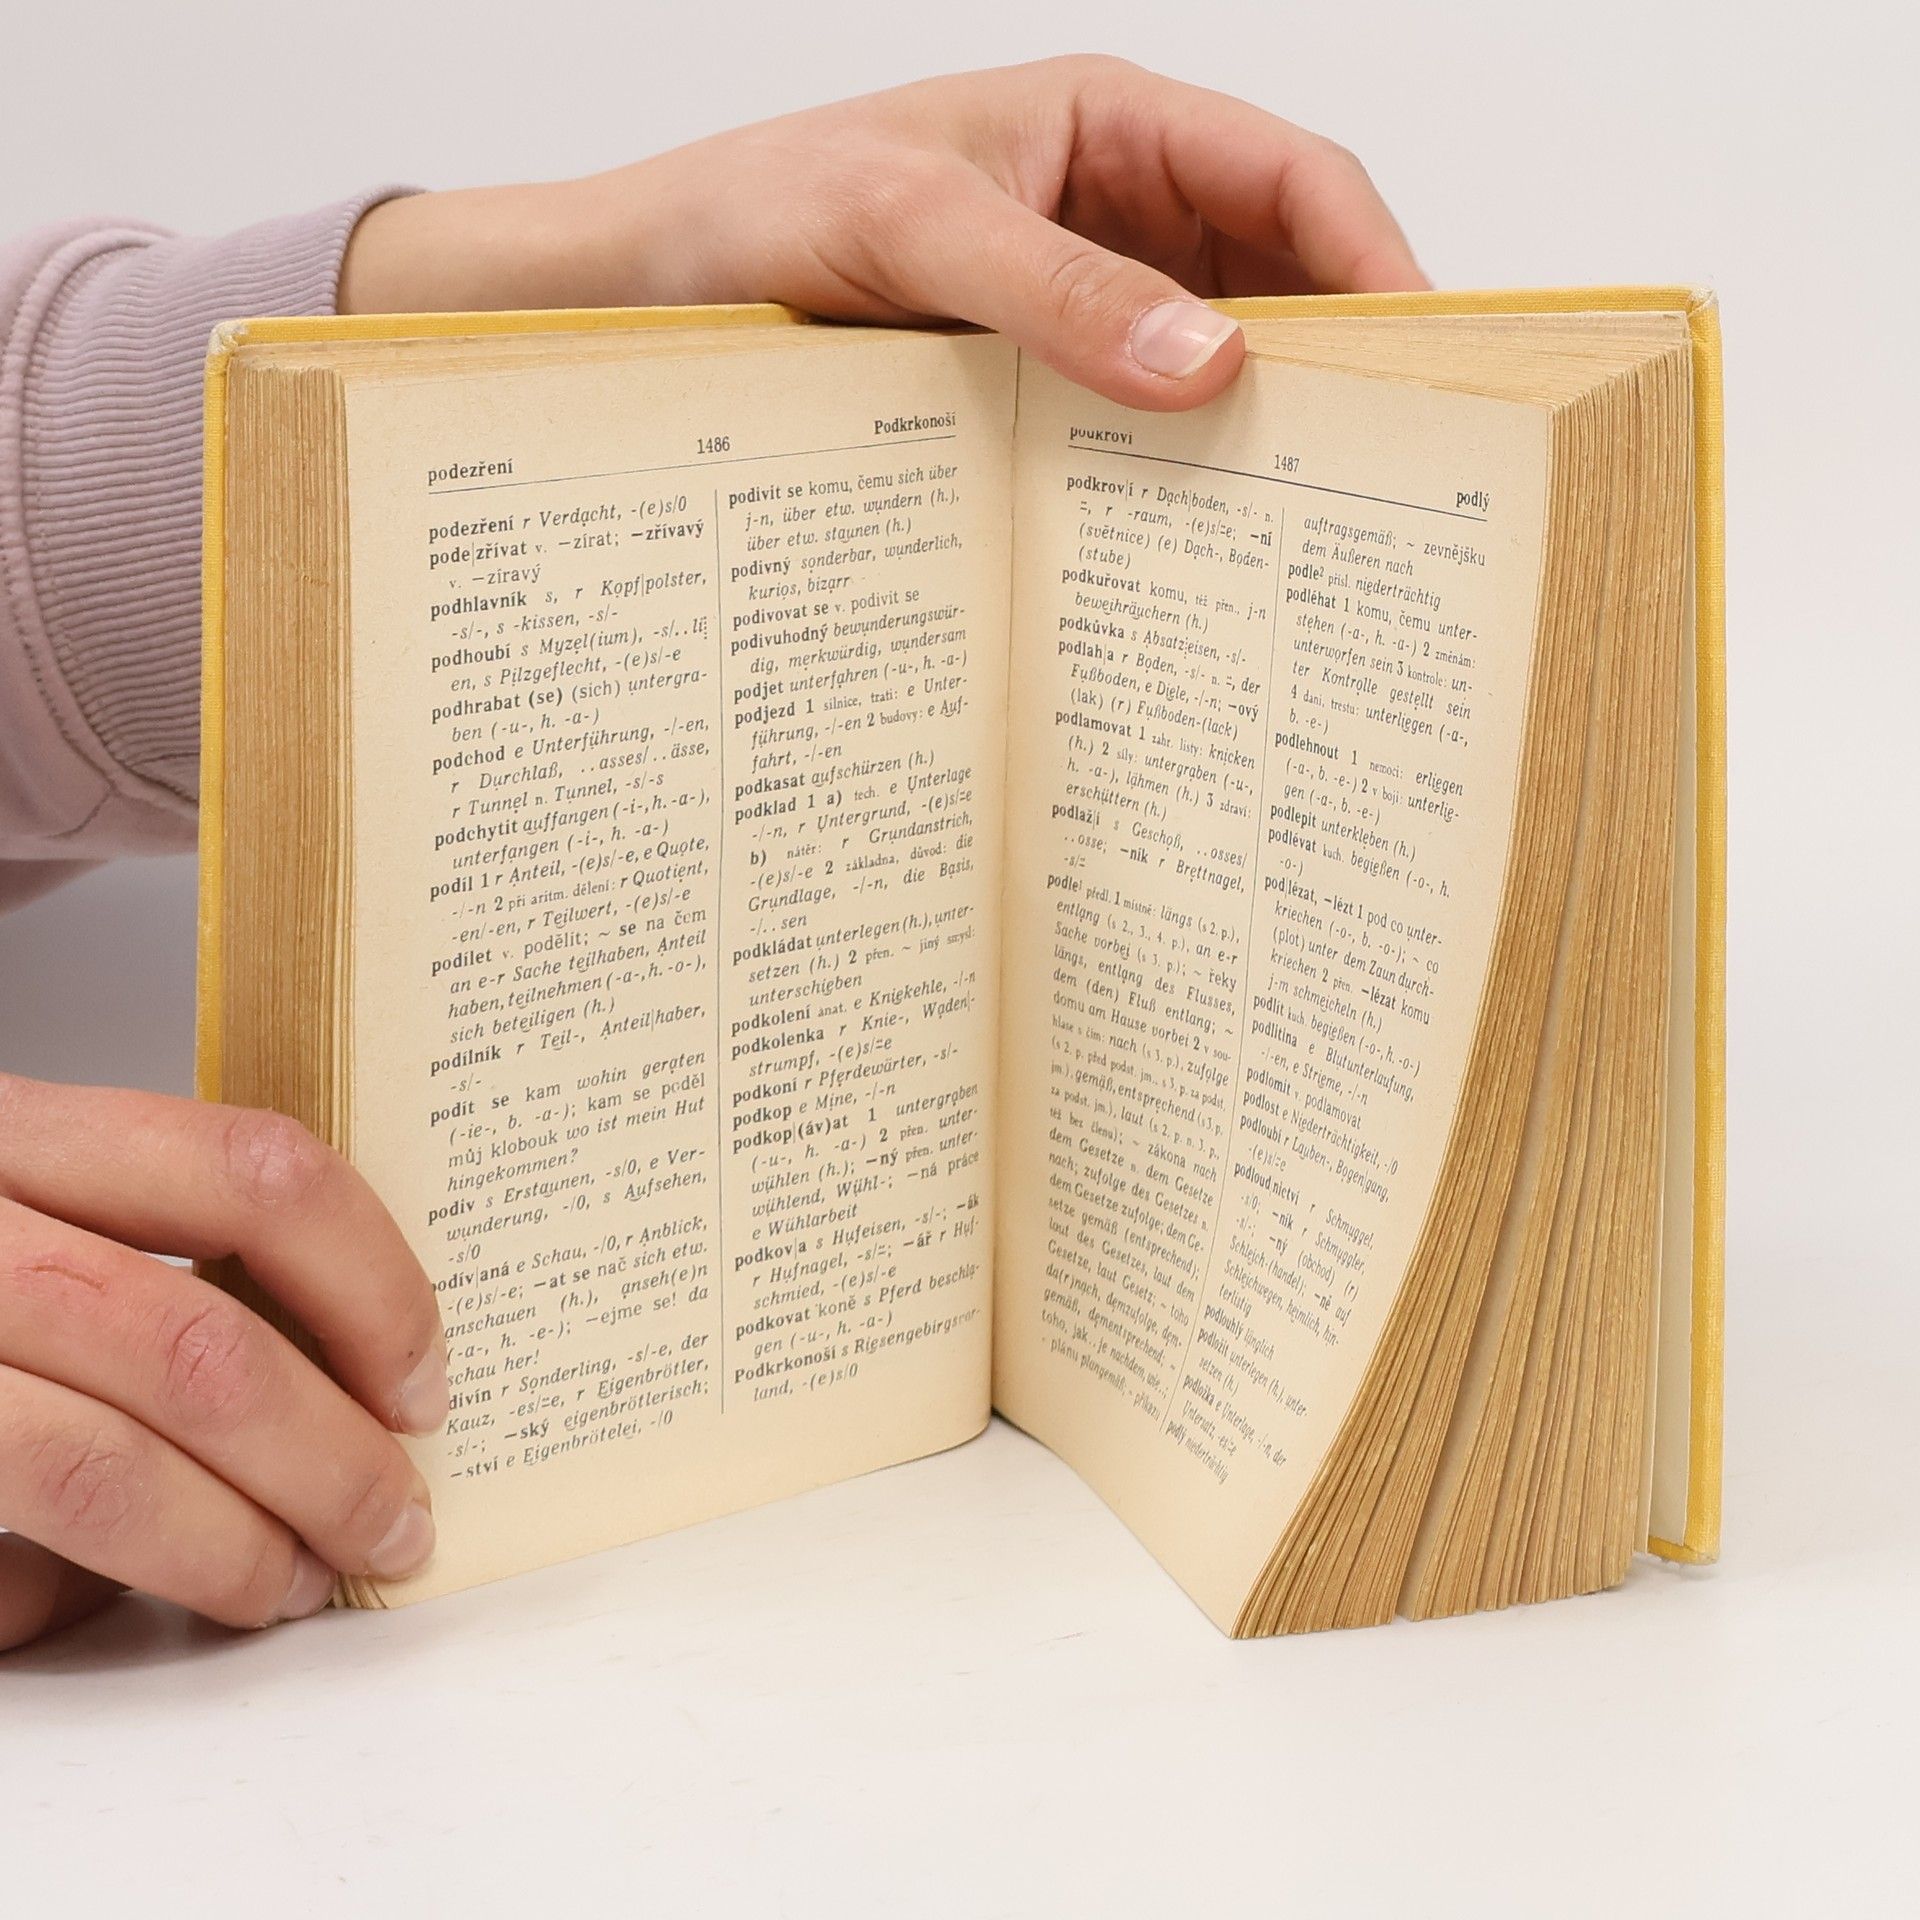 podezření
1486
Podkrkonoší
podezření r Verdacht, -(e)s/0
pode|zřívat v. —zírat; —zřívavý
v. —zíravý
podhlavník s, r Kopf|polster,
-s/-, s -kissen, -s/-
podhoubí s Myzel(ium), -s/..li
en, s Pilzgeflecht, -(e)s/-e
podhrabat (se) (sich) untergra-
ben (-u-, h. -a-)
podchod e Unterführung, -/-en,
r Durchlaß, ..asses/..ässe,
r Tunnel n. Tunnel, -s/-s
podchytit auffangen (-i-, h. -a-),
unterfangen (-i-, h. -a-)
podíl 1 r Anteil, -(e)s/-e, e Quote,
-/-n 2 při aritm. dělení: r Quotient,
-en/-en, r Teilwert, -(e)s/-e
podílet v. podělit; ~ se na čem
an e-r Sache teilhaben, Anteil
haben, teilnehmen (-a-, h. -o-),
sich beteiligen (h.)
podílník r Teil-, Anteil|haber,
-s/-
podít se kam wohin geraten
(-ie-, b. -a-); kam se poděl
můj klobouk wo ist mein Hut
hingekommen?
podiv s Erstaunen, -s/0, e Ver-
wunderung, -/0, s Aufsehen,
-s/0
podív|aná e Schau, -/0, r Anblick,
-(e)s/-e; —at se nač sich etw.
anschauen (h.), anseh(e)n
(-a-, h. -e-); —ejme se! da
schau her!
divín r Sonderling, -s/-e, der
Kauz, -es/⸚e, r Eigenbrötler,
-s/-; —ský eigenbrötlerisch;
—ství e Eigenbrötelei, -/0
podivit se komu, čemu sich über
j-n, über etw. wundern (h.),
über etw. staunen (h.)
podivný sonderbar, wunderlich,
kurios, bizarr
podivovat se v. podivit se
podivuhodný bewunderungswür-
dig, merkwürdig, wundersam
podjet unterfahren (-u-, h. -a-)
podjezd 1 silnice, trati: e Unter-
führung, -/-en 2 budovy: e Auf-
fahrt, -/-en
podkasat aufschürzen (h.)
podklad 1 a) tech. e Unterlage
-/-n, r Untergrund, -(e)s/⸚e
b) nátěr: r Grundanstrich,
-(e)s/-e 2 základna, důvod: die
Grundlage, -/-n, die Basis,
-/..sen
podkládat unterlegen (h.), unter-
setzen (h.) 2 přen. ~ jiný smysl:
unterschieben
podkolení anat. e Kniekehle, -/-n
podkolenka r Knie-, Waden|-
strumpf, -(e)s/⸚e
podkoní r Pferdewärter, -s/-
podkop e Mine, -/-n
podkop|(áv)at 1 untergraben
(-u-, h. -a-) 2 přen. unter-
wühlen (h.); —ný přen. unter-
wühlend, Wühl-; —ná práce
e Wühlarbeit
podkov|a s Hufeisen, -s/-; —ák
r Hufnagel, -s/⸚; —ář r Huf-
schmied, -(e)s/-e
podkovat koně s Pferd beschla-
gen (-u-, h. -a-)
Podkrkonoší s Riesengebirgsvor-
land, -(e)s/0
podkroví
1487
podlý
podkrov|í r Dach|boden, -s/- n.
⸚, r -raum, -(e)s/⸚e; —ní
(světnice) (e) Dach-, Boden-
(stube)
podkuřovat komu, též přen., j-n
beweihräuchern (h.)
podkůvka s Absatzeisen, -s/-
podlah|a r Boden, -s/- n. ⸚, der
Fußboden, e Diele, -/-n; —ový
(lak) (r) Fußboden-(lack)
podlamovat 1 zahr. listy: knicken
(h.) 2 síly: untergraben (-u-,
h. -a-), lähmen (h.) 3 zdraví:
erschüttern (h.)
podlaž|í s Geschoß, ..osses/
..osse; —ník r Brettnagel,
-s/⸚
podle¹ předl. 1 místně: längs (s 2. p.),
entlang (s 2., 3., 4. p.), an e-r
Sache vorbei (s 3. p.); ~ řeky
längs, entlang des Flusses,
dem (den) Fluß entlang; ~
domu am Hause vorbei 2 v sou-
hlase s čím: nach (s 3. p.), zufolge
(s 2. p. před podst. jm., s 3. p. za podst.
jm.), gemäß, entsprechend (s 3. p.
za podst. jm.), laut (s 2. p. n. 3. p.,
též bez členu); ~ zákona nach
dem Gesetze n. dem Gesetze
nach; zufolge des Gesetzes n.
dem Gesetze zufolge; dem Ge-
setze gemäß (entsprechend);
laut des Gesetzes, laut dem
Gesetze, laut Gesetz; ~ toho
da(r)nach, demzufolge, dem-
gemäß, dementsprechend; ~
toho, jak.. je nachdem, wie..;
~ plánu plangemäß; ~ příkazu
auftragsgemäß; ~ zevnějšku
dem Äußeren nach
podle² přísl. niederträchtig
podléhat 1 komu, čemu unter-
stehen (-a-, h. -a-) 2 změnám:
unterworfen sein 3 kontrole: un-
ter Kontrolle gestellt sein
4 dani, trestu: unterliegen (-a-,
b. -e-)
podlehnout 1 nemoci: erliegen
(-a-, b. -e-) 2 v boji: unterlie-
gen (-a-, b. -e-)
podlepit unterkleben (h.)
podlévat kuch. begießen (-o-, h.
-o-)
pod|lézat, —lézt 1 pod co unter-
kriechen (-o-, b. -o-); ~ co
(plot) unter dem Zaun durch-
kriechen 2 přen. —lézat komu
j-m schmeicheln (h.)
podlít kuch. begießen (-o-, h. -o-)
podlitina e Blutunterlaufung,
-/-en, e Strieme, -/-n
podlomit v. podlamovat
podlost e Niederträchtigkeit, -/0
podloubí r Lauben-, Bogen|gang,
-(e)s/⸚e
podloudnictví r Schmuggel,
-s/0; —ník r Schmuggler,
-s/-; —ný (obchod) (r)
Schleich-(handel); —ně auf
Schleichwegen, heimlich, hin-
terlistig
podlouhlý länglich
podložit unterlegen (h.), unter-
setzen (h.)
podložka e Unterlage, -/-n, der
Untersatz, -es/⸚e
podlý niederträchtig